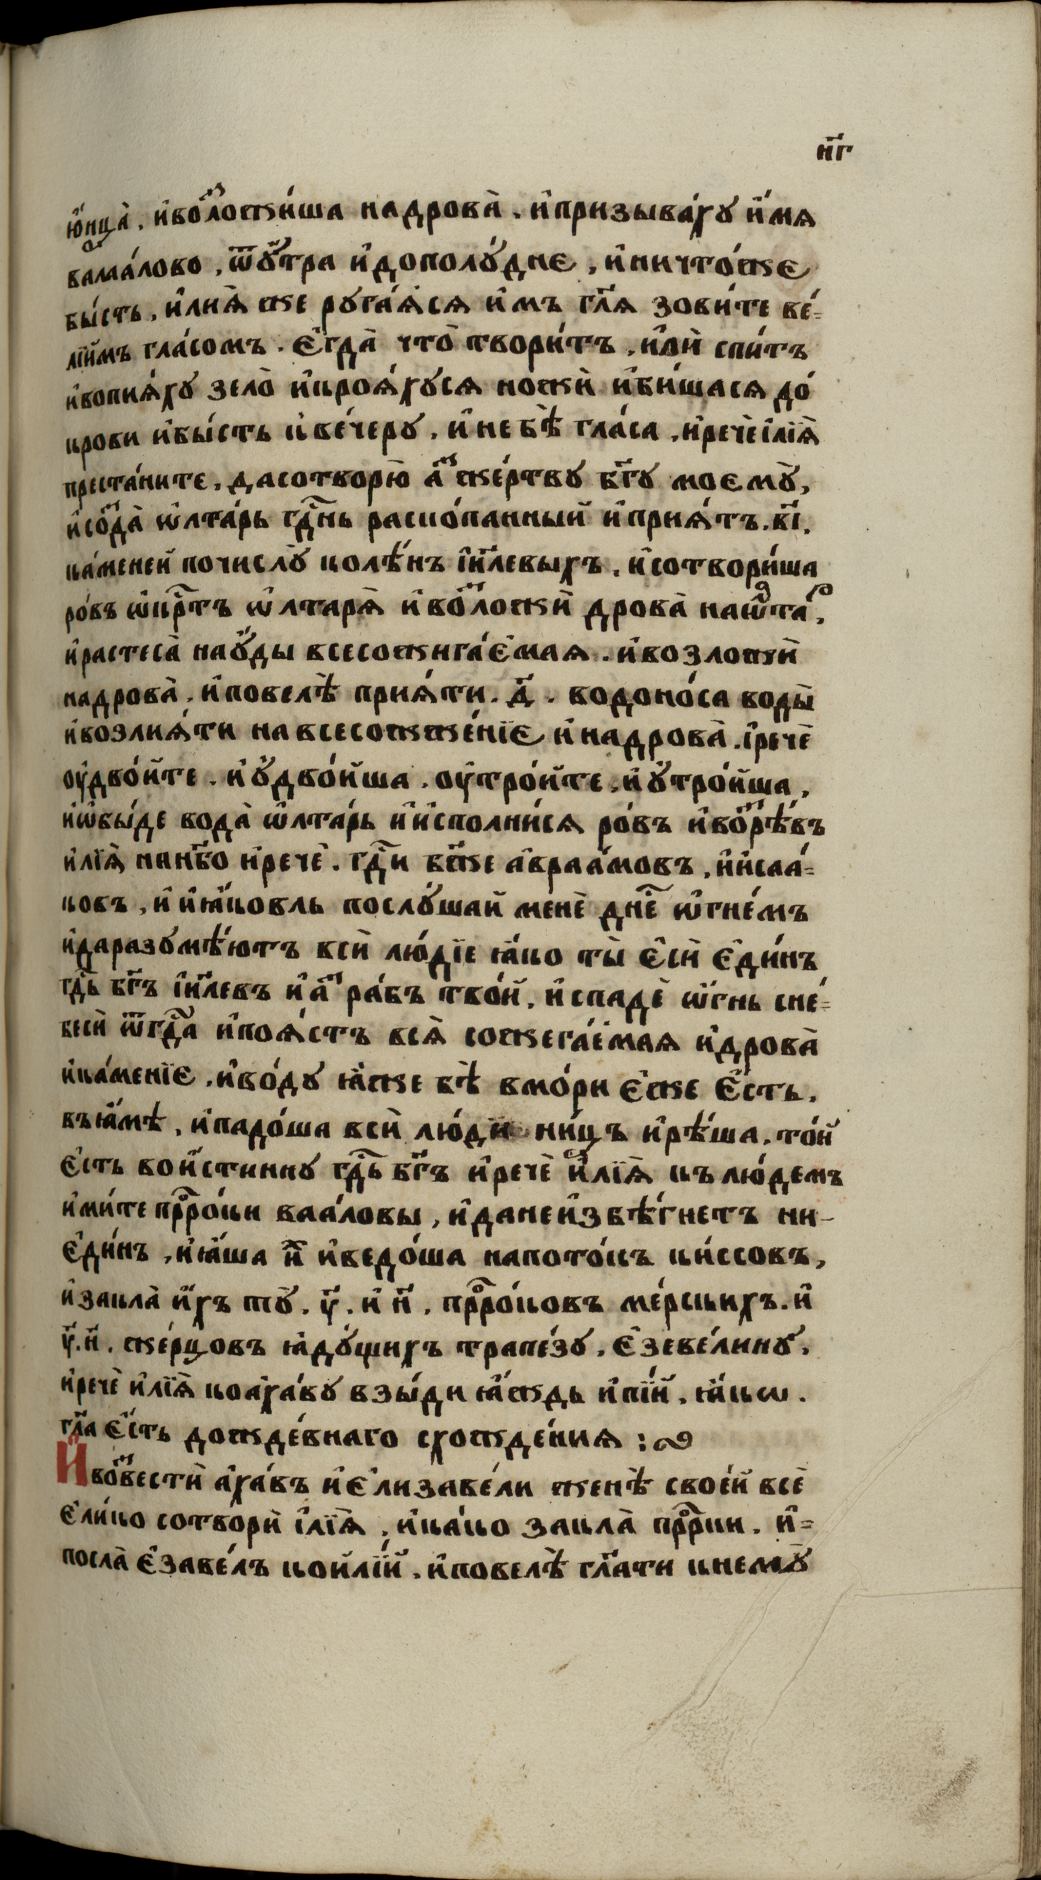 н҃г
ю҆нца̀ . и҆воⷥложи́ша надрова̀ . и҆призыва́хꙋ и҆́мѧ
ваа́лово , ѿꙋ҆́тра и҆дополꙋ́дне , и҆ничто́же
бы́сть , и҆лиѧ̀ же рꙋга́ѧсѧ и҆мъ гл҃ѧ зови́те ве́=
лїимъ гла́сомъ . є҆гда̀ что̀ твори́тъ , и҆лѝ спи́тъ
и҆вопиѧ́хꙋ зело̀ и҆кроѧ́хꙋсѧ ножѝ и҆би́шасѧ до́
крови и҆бы́сть к̾ве́черꙋ , и҆ не бѣ̀ гла́са , и҆речѐ і҆лїѧ̀
преста́ните , дасотворю̀ а҆́ⷥ же́ртвꙋ бг҃ꙋ моемꙋ̀ ,
и҆соⷥда̀ ѡ҆лта́рь гдⷭ҇нь раско́панный и҆приѧ́тъ . в҃і .
ка́меней почислꙋ̀ колѣ́нъ і҆и҃левыхъ . и҆сотвори́ша
ро́въ ѡ҆крⷭ҇тъ ѡ҆лтарѧ̀ и҆воⷥложѝ дрова̀ наѡ҆лтаⷬ҇ .
и҆растеса̀ наꙋ҆́ды всесожига́емаѧ . и҆возложѝ
надрова̀ . и҆повелѣ̀ приѧ́ти . д҃ . водоно́са воды̀
и҆возлиѧ́ти навсесожже́нїе и҆надрова̀ . і҆речѐ
оу҆дво́йте . и҆ꙋ҆дво́иша . оу҆тро́йте . и҆ꙋ҆тро́иша ,
и҆ѡ҆бы́де вода̀ ѡ҆лта́рь и҆и҆спо́лнисѧ ро́въ и҆воⷥрѣ́въ
и҆лїѧ̀ нанб҃о и҆речѐ . гдⷭ҇и бж҃е а҆враа́мовъ , и҆и҆саа́=
ковъ , и҆ и҆ꙗ҆́ковль послꙋ́шай менѐ днⷭ҇е ѡ҆гне́мъ
и҆даразꙋмѣ́ютъ всѝ лю́дїе ꙗ҆́ко ты̀ є҆сѝ є҆ди́нъ
гдⷭ҇ь бг҃ъ і҆и҃левъ и҆ а҆́ⷥ ра́бъ тво́й , и҆спадѐ ѡ҆́гнь сне́=
бесѝ ѿгдⷭ҇а и҆поѧ́стъ всѧ̀ сожега́емаѧ и҆дрова̀
и҆ка́менїе . и҆во́дꙋ ꙗ҆́же бѣ̀ вмо́ри є҆́же є҆́сть .
въꙗ҆́мѣ , и҆падо́ша всѝ лю́дїи ни́цъ и҆рѣ́ша . то́й
є҆́сть вои҆́стиннꙋ гдⷭ҇ь бг҃ъ и҆речѐ и҆лїѧ̀ къ лю́демъ
и҆ми́те прⷪ҇ро́ки ваа́ловы , и҆данеи҆збѣ́гнетъ ни-
є҆ди́нъ . и҆ꙗ҆́ша ѧ҆̀ и҆ведо́ша напото́къ ки́ссовъ ,
и҆закла̀ и҆́хъ тꙋ̀ . ҃у . и҆ н҃ . прⷪ҇ро́ковъ ме́рскихъ . и҆
у҃ . н҃ . жерцо́въ ꙗ҆дꙋ́щихъ трапе́зꙋ , є҆зеве́линꙋ .
и҆речѐ и҆лїѧ̀ коа҆ха́вꙋ взы́ди ꙗ҆́ждь и҆пі́й . ꙗ҆́кѡ .
гл҃а є҆́сть дожде́внаго схожде́ниѧ :
И҆воⷥвестѝ а҆ха́въ и҆є҆лизаве́ли женѣ̀ свое́й всѐ
є҆ли́ко сотворѝ і҆лїѧ̀ , и҆ка́ко закла̀ прⷪ҇ро́ки . и҆=
посла̀ є҆заве́лъ коилїи́ , и҆повелѣ̀ гл҃ати кнемꙋ̀